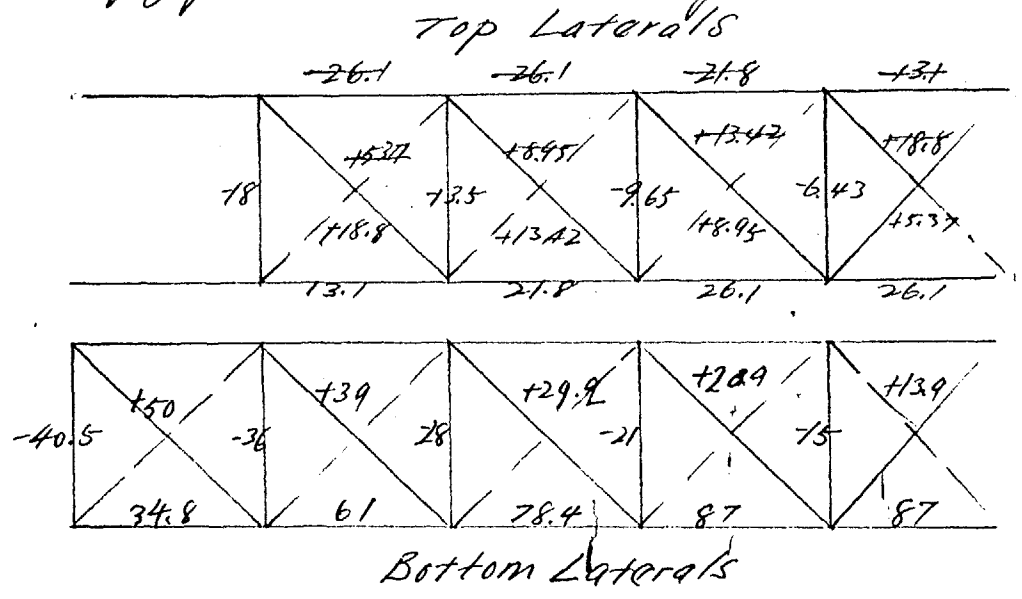 Top Laterals
-26.1 -26.1 -21.8 -13.1
+5.37 +8.95 +13.42 +18.8
-18 -13.5 -9.65 -6.43
+18.8 +13.42 +8.95 +5.37
13.1 21.8 26.1 26.1
+50 +39 +29.9 +20.9 +13.9
-40.5 -36 -28 -21 -15
34.8 61 78.4 87 87
Bottom Laterals